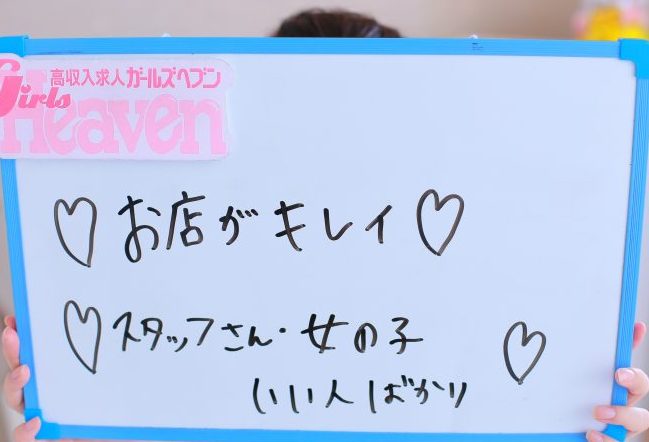 高収入求人ガールズヘブン
Girls
Heaven
♡お店がキレイ♡
♡スタッフさん・女の子
いい人ばかり♡